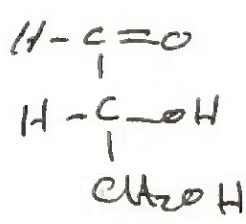 H-C=O
H-C-OH
CH2OH